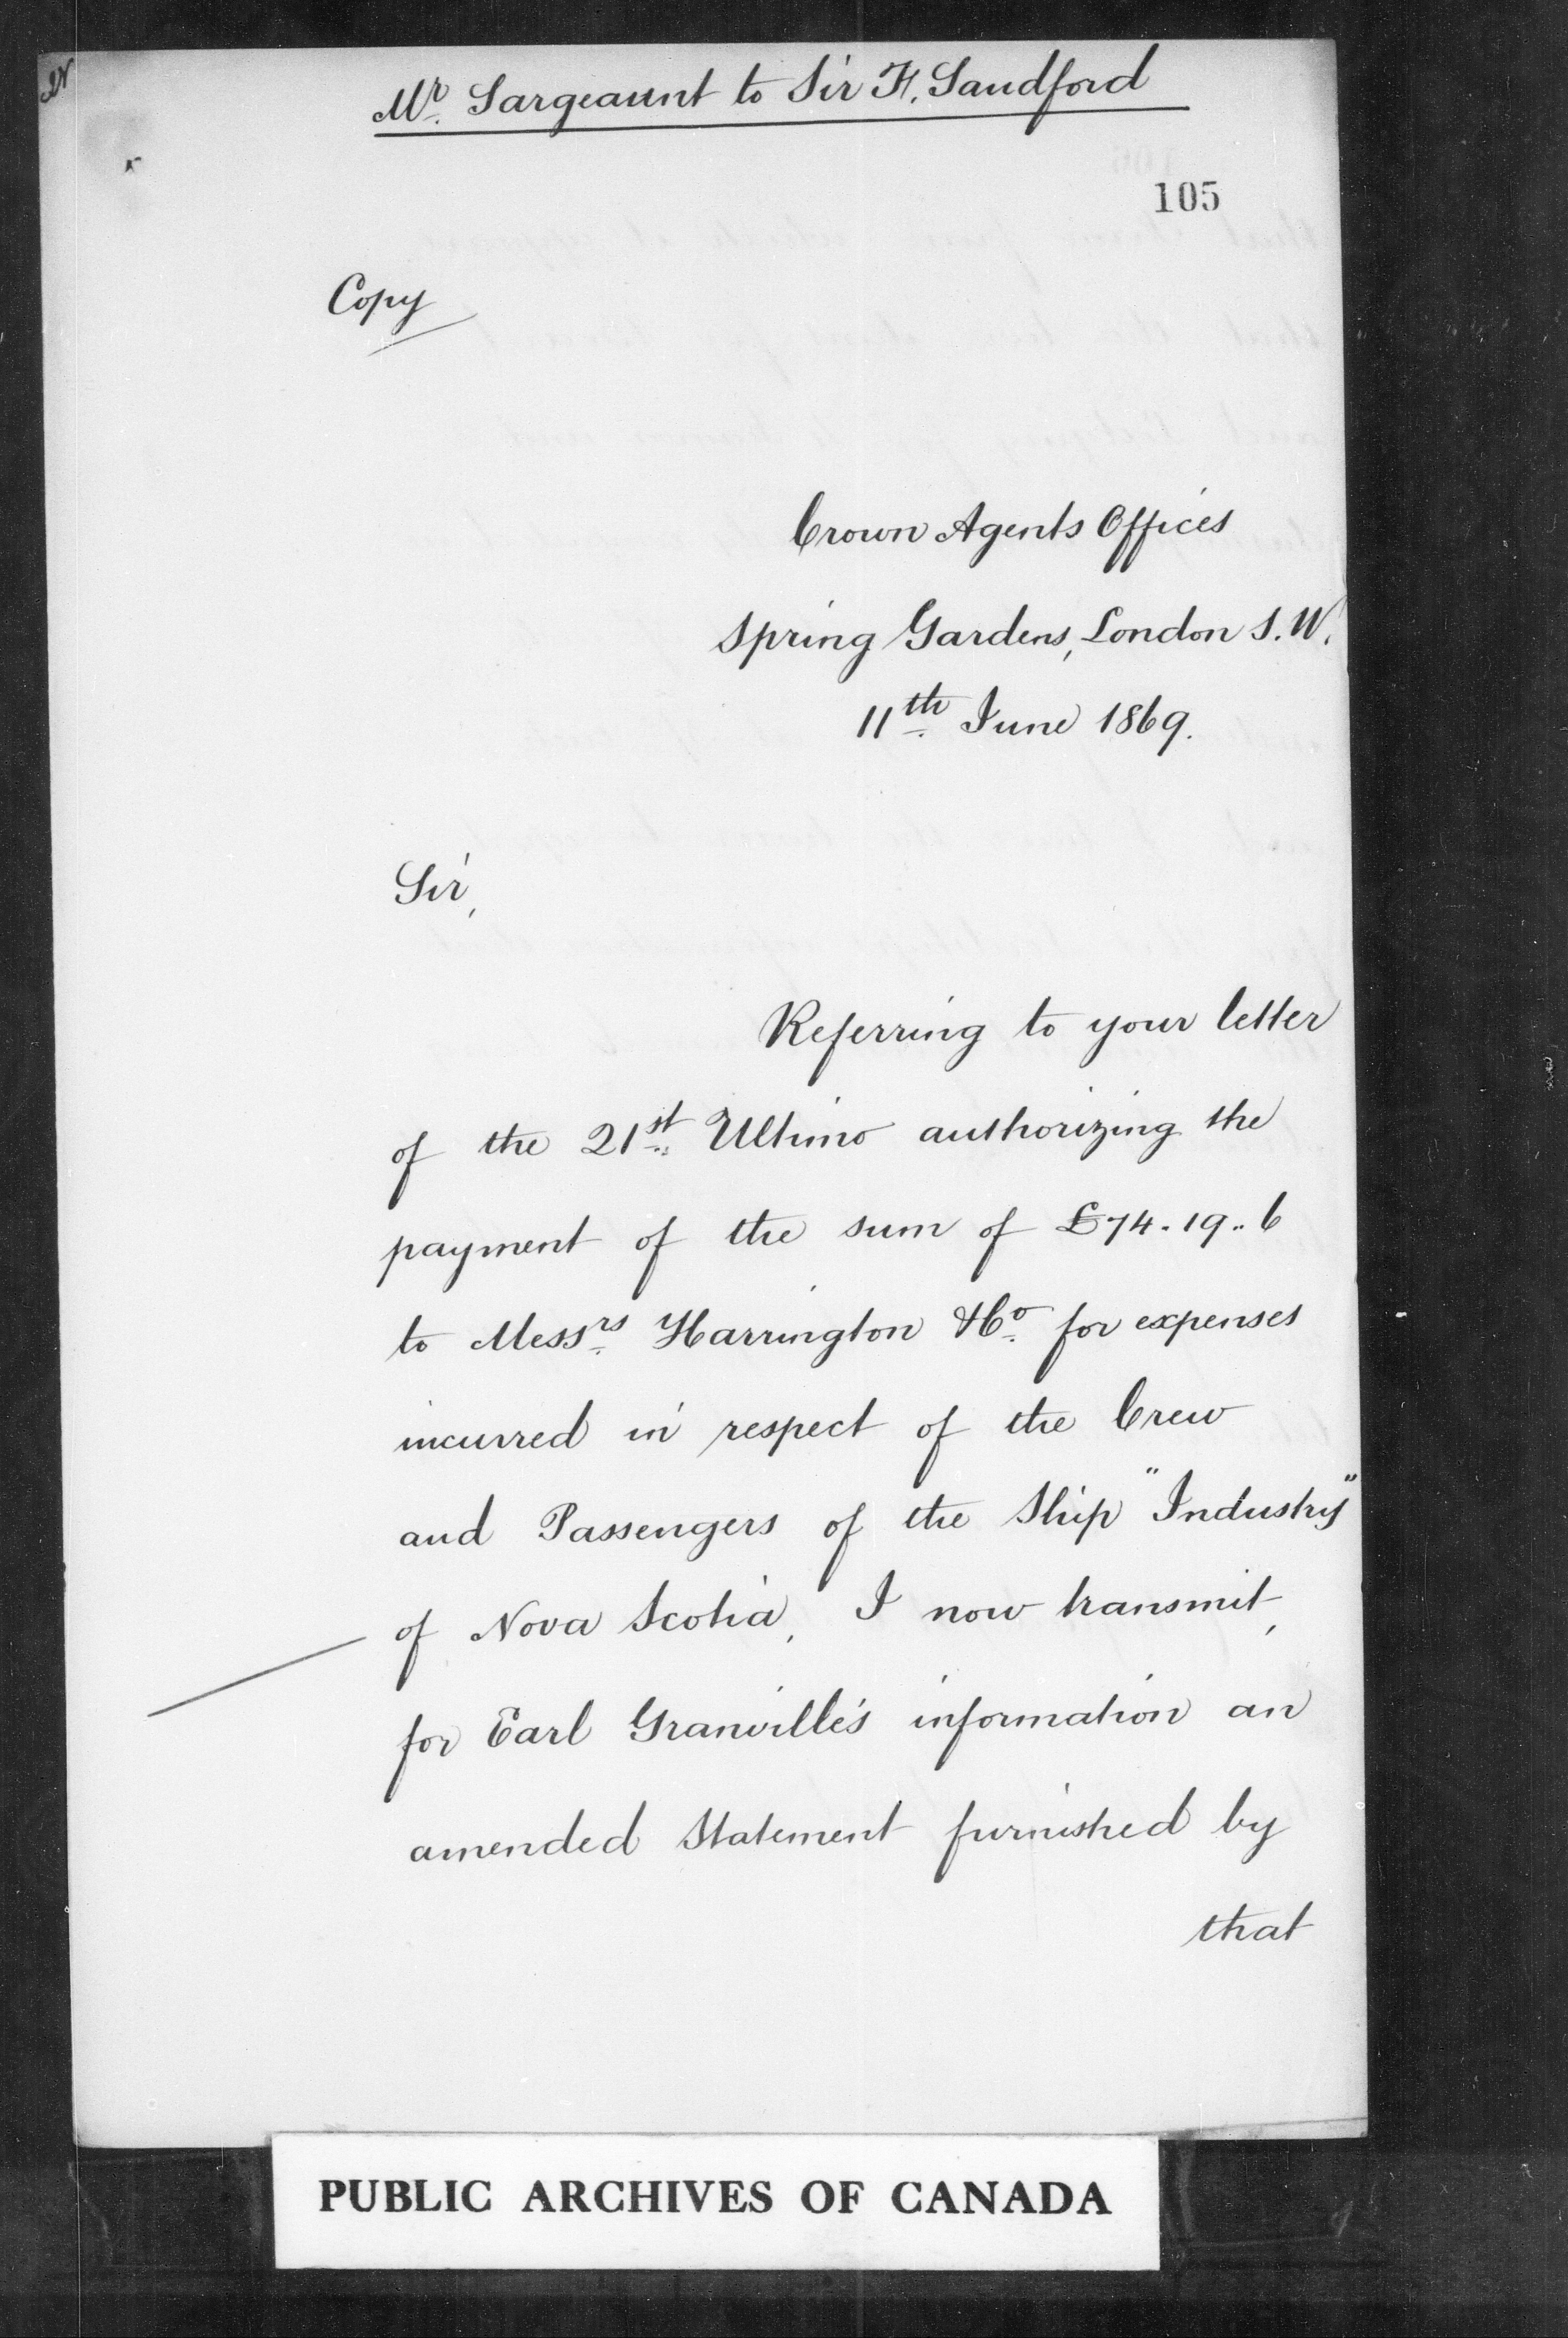 Mr. Sargeaunt to Sir F. Sandford
105
Copy
Crown Agents Offices
Spring Gardens, London S.W.
11th June 1869.
Sir,
Referring to your letter
of the 21st Ultimo authorizing the
payment of the sum of £74.19..6
to Messrs Harrington & Co. for expenses
incurred in respect of the Crew
and Passengers of the Ship "Industry"
of Nova Scotia, I now transmit,
for Earl Granville's information an
amended Statement furnished by
that
PUBLIC ARCHIVES OF CANADA